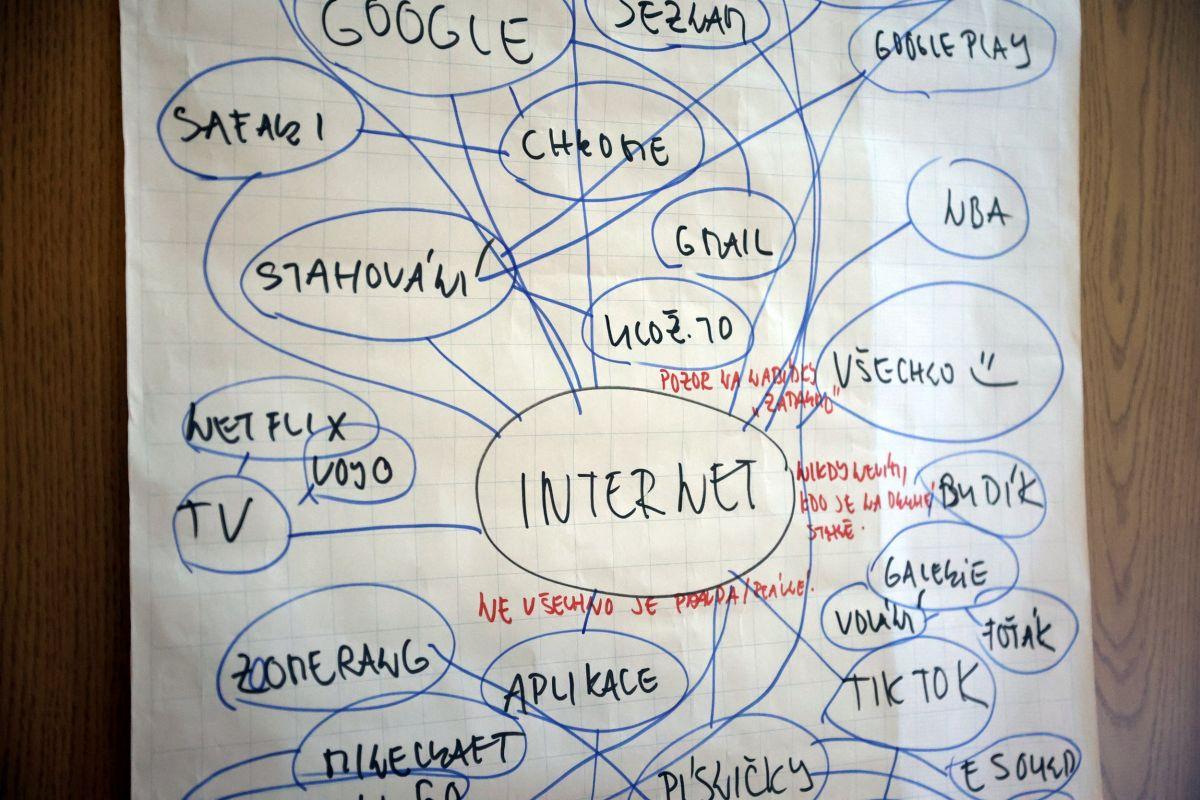 GOOGLE
SEZNAM
GOOGLE PLAY
SAFARI
CHROME
NBA
GMAIL
STAHOVÁNÍ
ULOŽ.TO
POZOR NA NABÍDKY
„ZADARMO"
VŠECHNO
NETFLIX
VOYO
TV
INTERNET
NIKDY NEVÍM,
KDO JE NA DRUHÉ
STRANĚ.
BUDÍK
GALERIE
NE VŠECHNO JE PRAVDA/REÁLNÉ!
VOLÁNÍ
FOŤÁK
ZOOMERANG
APLIKACE
TIKTOK
MINECRAFT
PÍSNIČKY
ESOUND